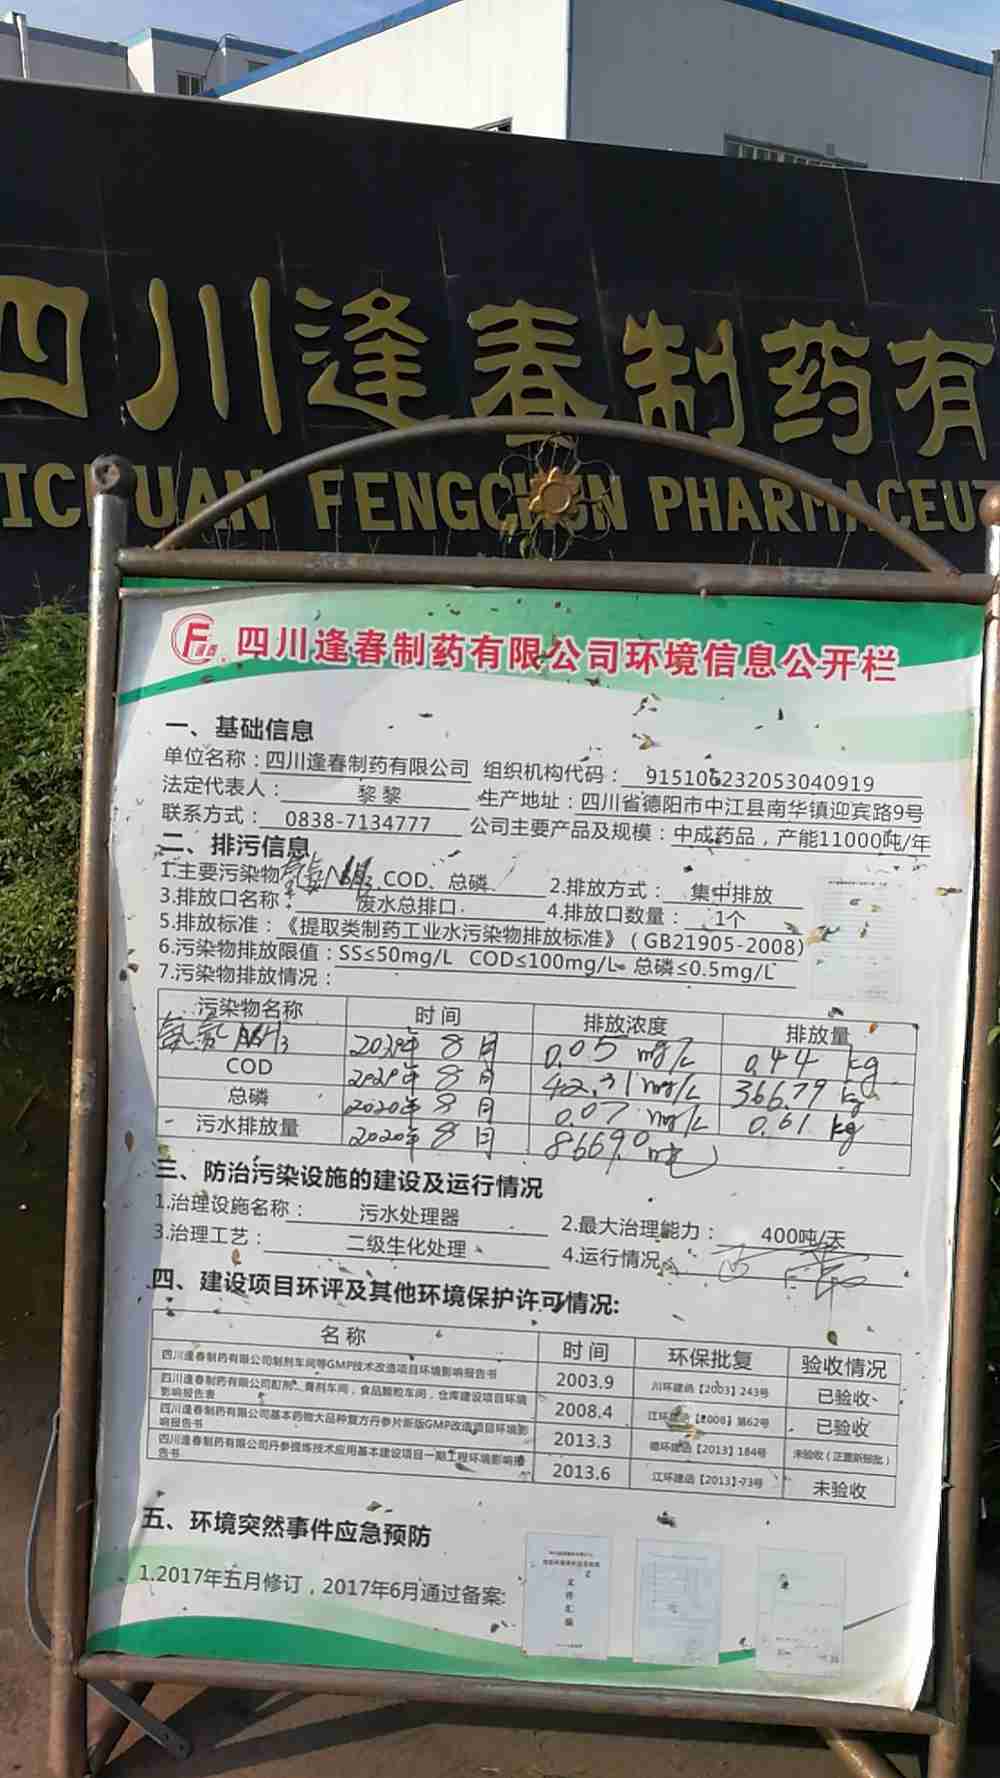 四川逢春制药有
ICHUAN FENGCHUN PHARMACEUT
四川逢春制药有限公司环境信息公开栏
一、基础信息
单位名称：四川逢春制药有限公司 组织机构代码：915106232053040919
法定代表人：黎黎 生产地址：四川省德阳市中江县南华镇迎宾路9号
联系方式：0838-7134777 公司主要产品及规模：中成药品，产能11000吨/年
二、排污信息
1.主要污染物 氨氮NH3、COD、总磷 2.排放方式：集中排放
3.排放口名称：废水总排口 4.排放口数量：1个
5.排放标准：《提取类制药工业水污染物排放标准》（GB21905-2008）
6.污染物排放限值：SS≤50mg/L COD≤100mg/L 总磷≤0.5mg/L
7.污染物排放情况：
污染物名称 时间 排放浓度 排放量
氨氮NH3 2020年8月 0.05 mg/L 0.44 kg
COD 2020年8月 42.31mg/L 366.79 kg
总磷 2020年8月 0.07 mg/L 0.61 kg
污水排放量 2020年8月 8669.0吨
三、防治污染设施的建设及运行情况
1.治理设施名称：污水处理器 2.最大治理能力：400吨/天
3.治理工艺：二级生化处理 4.运行情况：
四、建设项目环评及其他环境保护许可情况:
名称 时间 环保批复 验收情况
四川逢春制药有限公司制剂车间等GMP技术改造项目环境影响报告书 2003.9 川环建函【2003】243号 已验收
四川逢春制药有限公司酊剂、膏剂车间，食品颗粒车间，仓库建设项目环境影响报告表 2008.4 江环建函【2008】第62号 已验收
四川逢春制药有限公司基本药物大品种复方丹参片新版GMP改造项目环境影响报告书 2013.3 德环建函【2013】184号 未验收（正重新报批）
四川逢春制药有限公司丹参提炼技术应用基本建设项目一期工程环境影响报告书 2013.6 江环建函【2013】73号 未验收
五、环境突然事件应急预防
1.2017年五月修订，2017年6月通过备案:
文件汇编